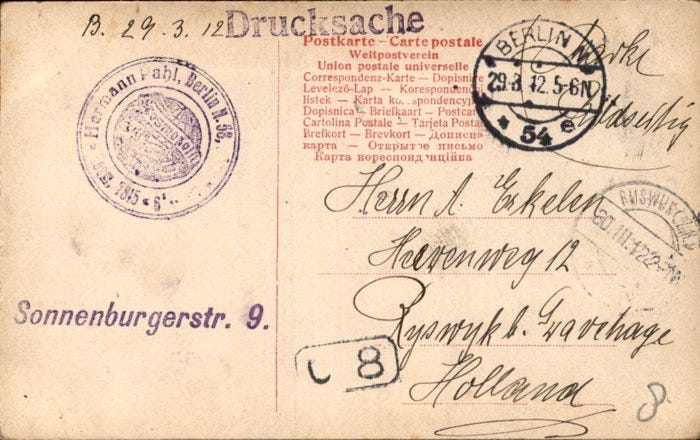 B. 29.3.12
Drucksache
Postkarte – Carte postale
Weltpostverein
Union postale universelle
Correspondenz-Karte – Dopisnice
Levelező-Lap – Korespondenční
lístek – Karta korespondencyjna
Dopisnica – Briefkaart – Postcard
Cartolina Postale – Tarjeta Postal
Brefkort – Brevkort – Дописна
карта – Открытое письмо
Карта кореспонденційна
BERLIN N
29.3.12.5-6N
* 54 e *
Marke
Bildseitig
Hermann Pahl, Berlin N. 58,
Herrn A. Erkelen
Herenweg 12
Ryswyk b. Gravehage
Holland
RIJSWIJK
30 III 12
Sonnenburgerstr. 9.
8
8